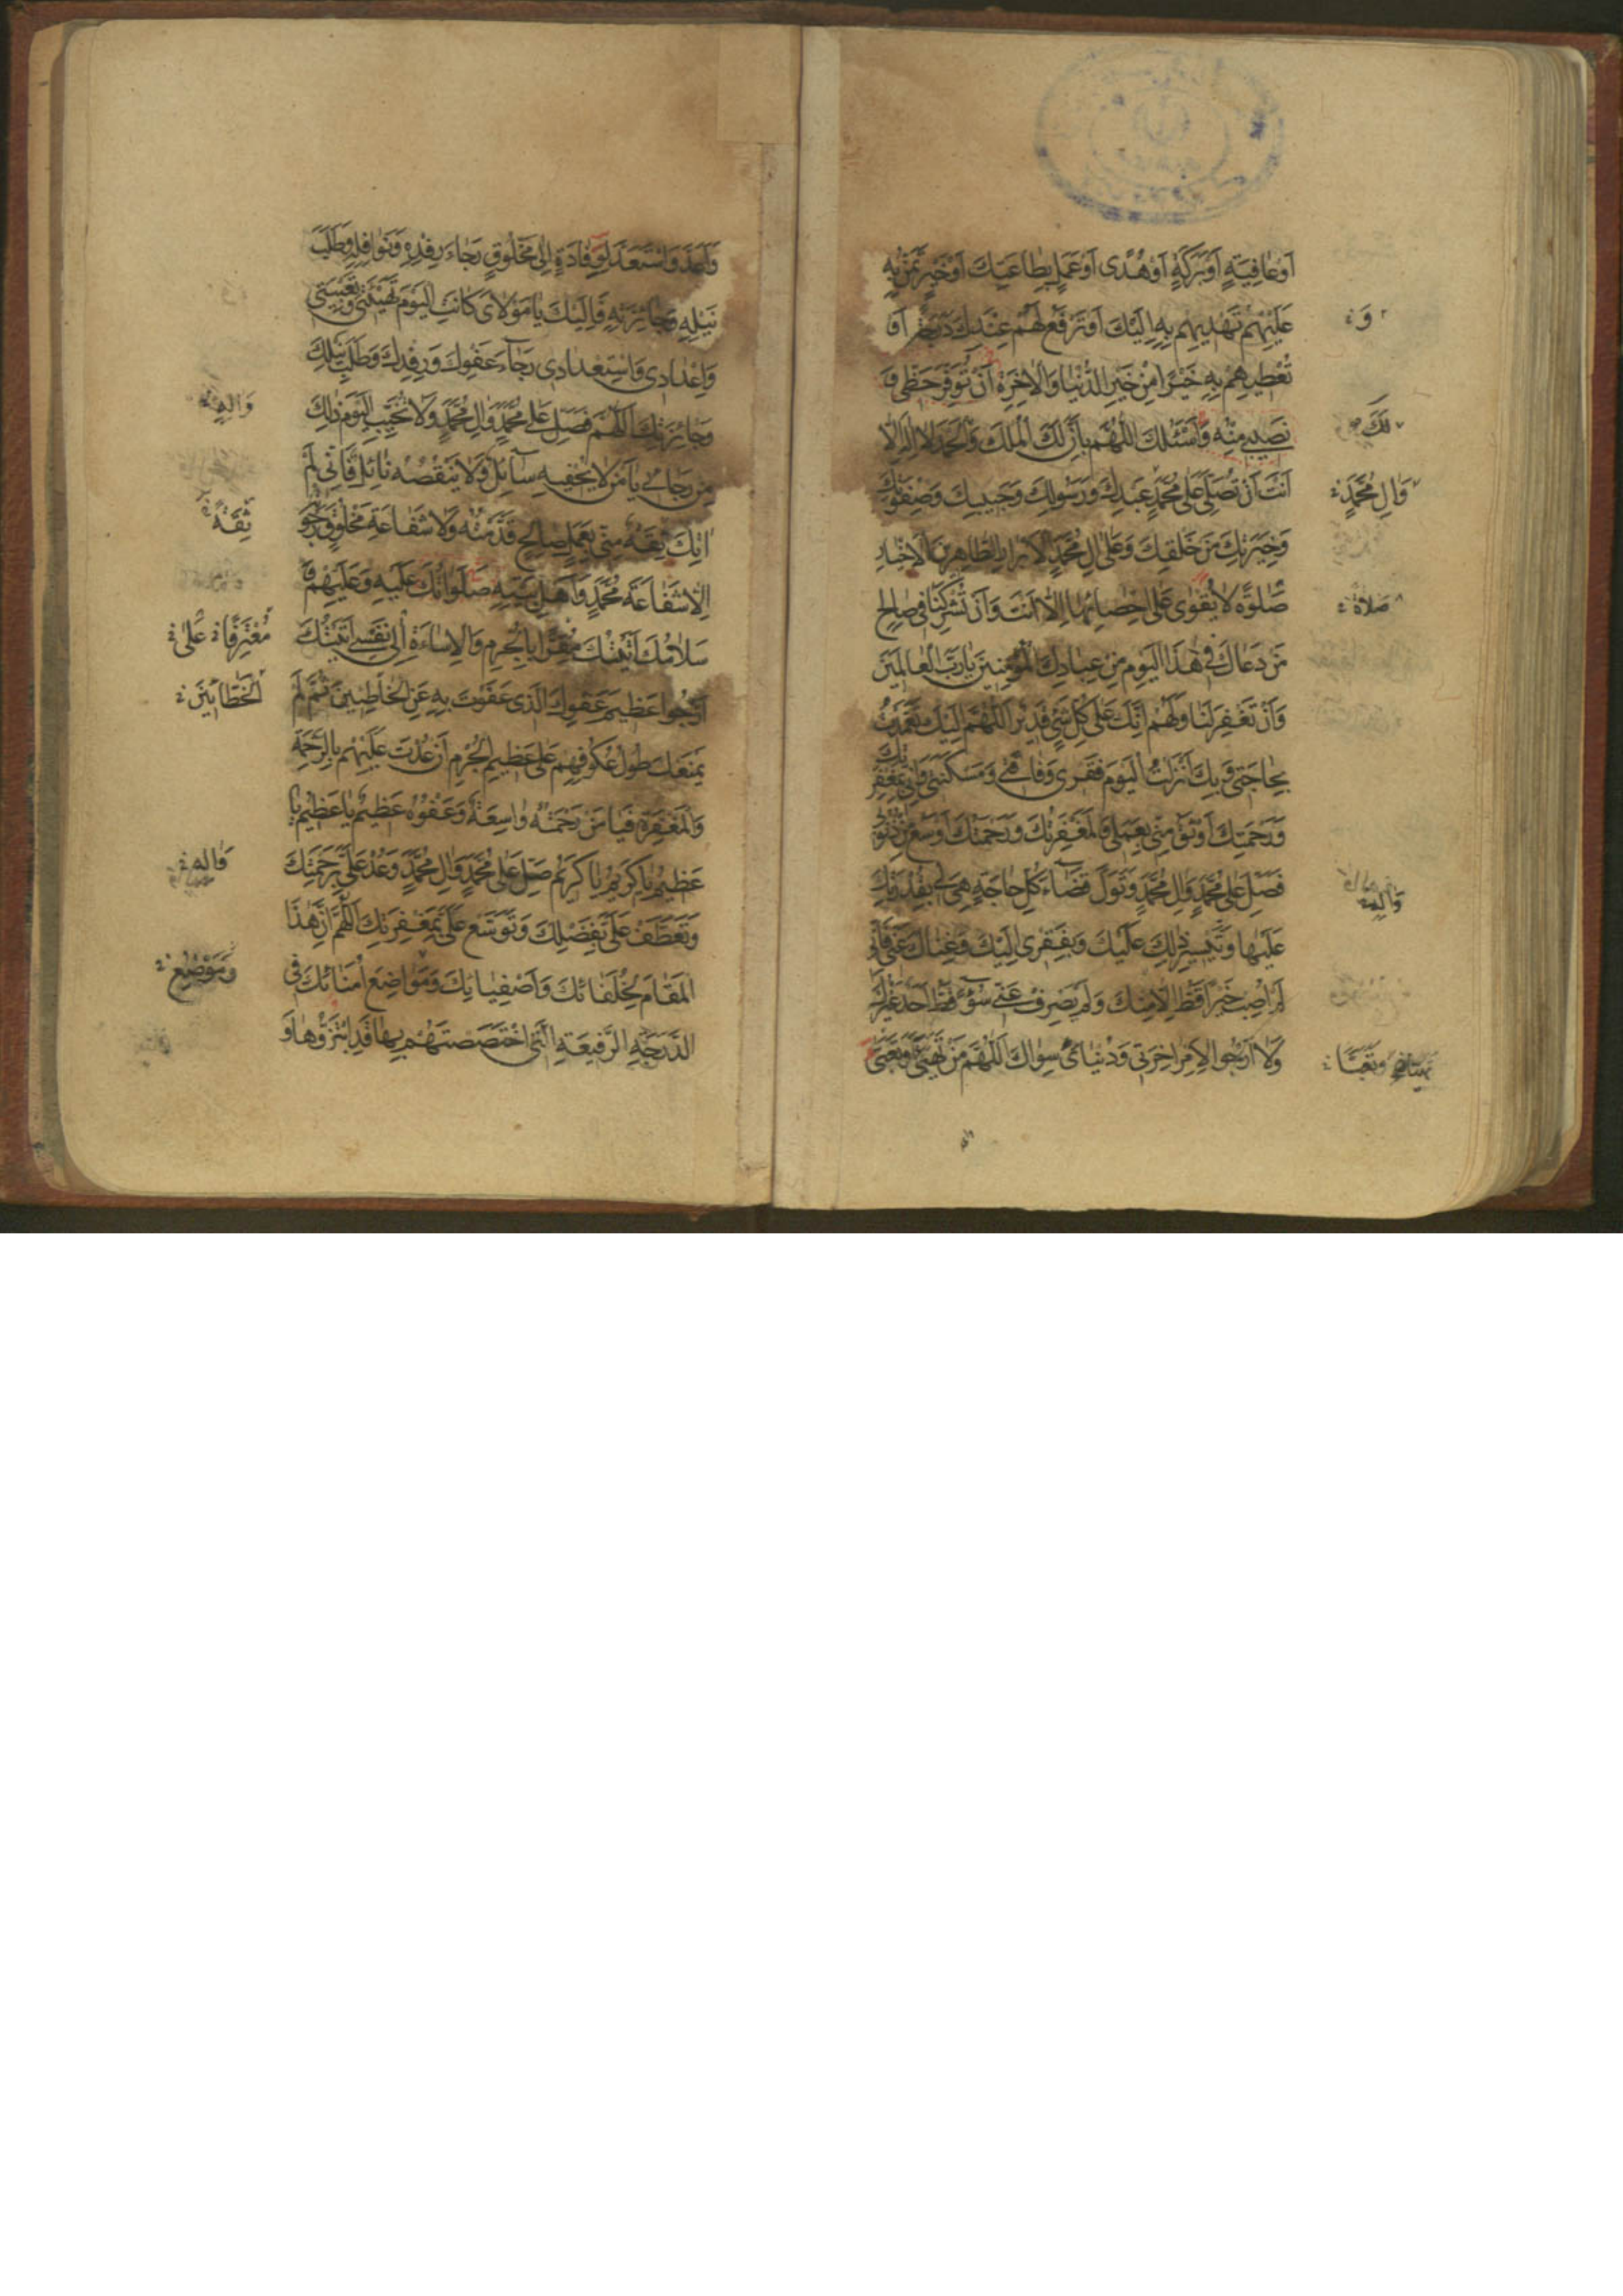 اَوْ عافِيَةٍ اَوْ بَرَكَةٍ اَوْ هُدًى اَوْ عَمَلٍ بِطاعَتِكَ اَوْ خَيْرٍ تَمُنُّ بِهِ
عَلَيْهِمْ تَهْديهِمْ بِهِ اِلَيْكَ اَوْ تَرْفَعُ لَهُمْ عِنْدَكَ دَرَجَةً اَوْ
وَ
تُعْطيهِمْ بِهِ خَيْرًا مِنْ خَيْرِ الدُّنْيا وَالْاخِرَةِ اَنْ تُوَفِّرَ حَظّى وَ
نَصيبى مِنْهُ وَاَسْئَلُكَ اللّهُمَّ بِاَنَّ لَكَ الْمُلْكَ وَالْحَمْدَ لا اِلهَ اِلّا
لَكَ
اَنْتَ اَنْ تُصَلِّىَ عَلى مُحَمَّدٍ عَبْدِكَ وَرَسُولِكَ وَحَبيبِكَ وَصِفْوَتِكَ
وَالِ مُحَمَّدٍ
وَخِيَرَتِكَ مِنْ خَلْقِكَ وَعَلى الِ مُحَمَّدٍ الْاَبْرارِ الطّاهِرينَ الْاَخْيارِ
صَلوةً لا يَقْوى عَلى اِحْصائِها اِلّا اَنْتَ وَاَنْ تُشْرِكَنا فى صالِحِ
صَلاةً
مَنْ دَعاكَ فى هذَا الْيَوْمِ مِنْ عِبادِكَ الْمُؤْمِنينَ يا رَبَّ الْعالَمينَ
وَاَنْ تَغْفِرَ لَنا وَلَهُمْ اِنَّكَ عَلى كُلِّ شَىْءٍ قَديرٌ اَللّهُمَّ اِلَيْكَ تَعَمَّدْتُ
بِحاجَتى وَبِكَ اَنْزَلْتُ الْيَوْمَ فَقْرى وَفاقَتى وَمَسْكَنَتى وَاِنّى بِمَغْفِرَتِكَ
وَرَحْمَتِكَ اَوْثَقُ مِنّى بِعَمَلى وَلَمَغْفِرَتُكَ وَرَحْمَتُكَ اَوْسَعُ مِنْ ذُنُوبى
فَصَلِّ عَلى مُحَمَّدٍ وَالِ مُحَمَّدٍ وَتَوَلَّ قَضاءَ كُلِّ حاجَةٍ هِىَ لى بِقُدْرَتِكَ
وَالِهِ
عَلَيْها وَتَيْسيرِ ذلِكَ عَلَيْكَ وَبِفَقْرى اِلَيْكَ وَغِناكَ عَنّى فَاِنّى
لَمْ اُصِبْ خَيْرًا قَطُّ اِلّا مِنْكَ وَلَمْ يَصْرِفْ عَنّى سُوْءً قَطُّ اَحَدٌ غَيْرُكَ
وَلا اَرْجُو لِاَمْرِ اخِرَتى وَدُنْياىَ سِواكَ اَللّهُمَّ مَنْ تَهَيَّاَ وَتَعَبَّى
وَتَعَبَّاَ
وَاَعَدَّ وَاسْتَعَدَّ لِوِفادَةٍ اِلى مَخْلُوقٍ رَجاءَ رِفْدِهِ وَنَوافِلِهِ وَطَلَبَ
نَيْلِهِ وَجائِزَتِهِ فَاِلَيْكَ يا مَوْلاىَ كانَتِ الْيَوْمَ تَهْيِئَتى وَتَعْبِيَتى
وَاِعْدادى وَاسْتِعْدادى رَجاءَ عَفْوِكَ وَرِفْدِكَ وَطَلَبِ نَيْلِكَ
وَجائِزَتِكَ اَللّهُمَّ فَصَلِّ عَلى مُحَمَّدٍ وَالِ مُحَمَّدٍ وَلا تُخَيِّبِ الْيَوْمَ ذلِكَ
وَالِهِ
مِنْ رَجائى يا مَنْ لا يُحْفيهِ سائِلٌ وَلا يَنْقُصُهُ نائِلٌ فَاِنّى لَمْ
اتِكَ ثِقَةً مِنّى بِعَمَلٍ صالِحٍ قَدَّمْتُهُ وَلا شَفاعَةِ مَخْلُوقٍ رَجَوْتُهُ
ثِقَةً
اِلّا شَفاعَةَ مُحَمَّدٍ وَاَهْلِ بَيْتِهِ صَلَواتُكَ عَلَيْهِ وَعَلَيْهِمْ وَ
سَلامُكَ اَتَيْتُكَ مُقِرًّا بِالْجُرْمِ وَالْاِساءَةِ اِلى نَفْسى اَتَيْتُكَ
مُعْتَرِفًا عَلى
اَرْجُو عَظيمَ عَفْوِكَ الَّذى عَفَوْتَ بِهِ عَنِ الْخاطِئينَ ثُمَّ لَمْ
الْخَطّائينَ
يَمْنَعْكَ طُولُ عُكُوفِهِمْ عَلى عَظيمِ الْجُرْمِ اَنْ عُدْتَ عَلَيْهِمْ بِالرَّحْمَةِ
وَالْمَغْفِرَةِ فَيا مَنْ رَحْمَتُهُ واسِعَةٌ وَعَفْوُهُ عَظيمٌ يا عَظيمُ يا
عَظيمُ يا كَريمُ يا كَريمُ صَلِّ عَلى مُحَمَّدٍ وَالِ مُحَمَّدٍ وَعُدْ عَلَىَّ بِرَحْمَتِكَ
وَالِهِ
وَتَعَطَّفْ عَلَىَّ بِفَضْلِكَ وَتَوَسَّعْ عَلَىَّ بِمَغْفِرَتِكَ اَللّهُمَّ اِنَّ هذَا
الْمَقامَ لِخُلَفائِكَ وَاَصْفِيائِكَ وَمَواضِعَ اُمَنائِكَ فى
وَمَوْضِعَ
الدَّرَجَةِ الرَّفيعَةِ الَّتى اخْتَصَصْتَهُمْ بِها قَدِ ابْتَزُّوها وَ